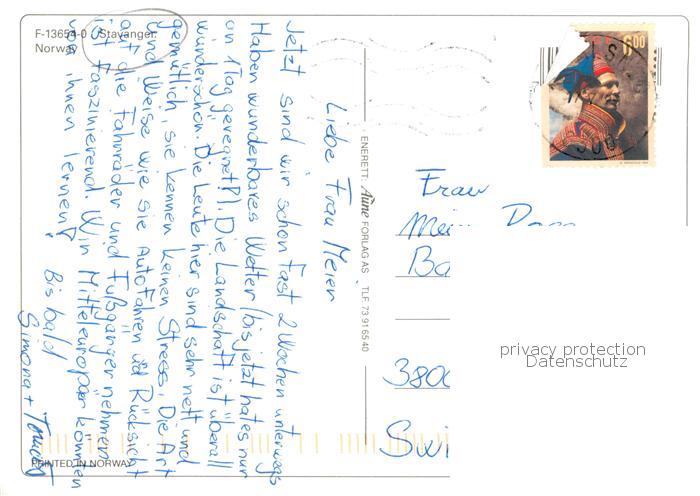 F-13654-0 Stavanger.
Norway
Liebe Frau Meier
Jetzt sind wir schon fast 2 Wochen unterwegs
Haben wunderbares Wetter (bis jetzt hat es nur
an 1 Tag geregnet!!). Die Landschaft ist überall
wunderschön. Die Leute hier sind sehr nett und
gemütlich, sie kennen keinen Stress. Die Art
und Weise wie sie Autofahren und Rücksicht
auf die Fahrräder und Fußgänger nehmen
ist faszinierend. Wir Mitteleuropäer könnten
von ihnen lernen!
Bis bald
Simona +
PRINTED IN NORWAY
ENERETT: Aune FORLAG AS TLF. 73 91 65 40
6.00
Frau
Ba
380
Swi
privacy protection
Datenschutz